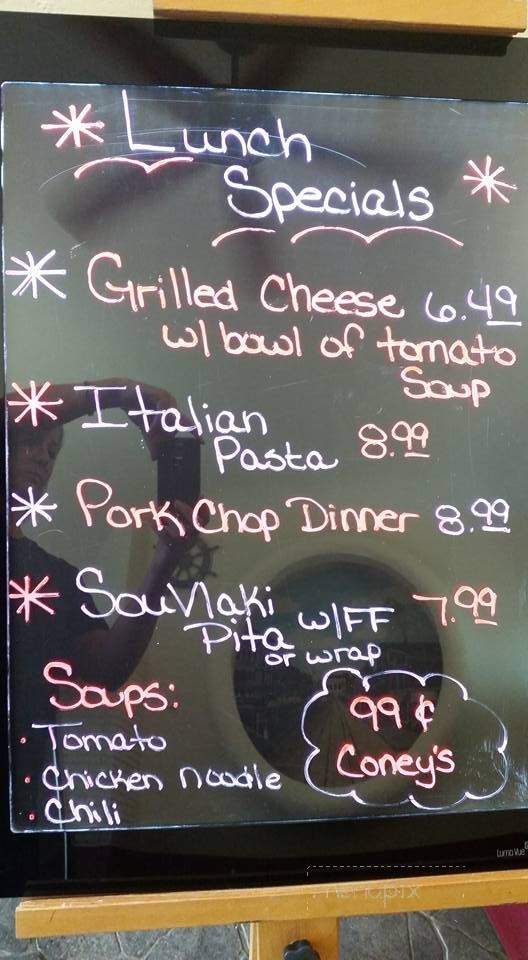 * Lunch
Specials *
* Grilled Cheese 6.49
w/ bowl of tomato
Soup
* Italian
Pasta 8.99
* Pork Chop Dinner 8.99
* Souvlaki
Pita w/FF 7.99
or wrap
Soups:
· Tomato
· Chicken noodle
· Chili
99 ¢
Coney's
Luma Vue
menupix